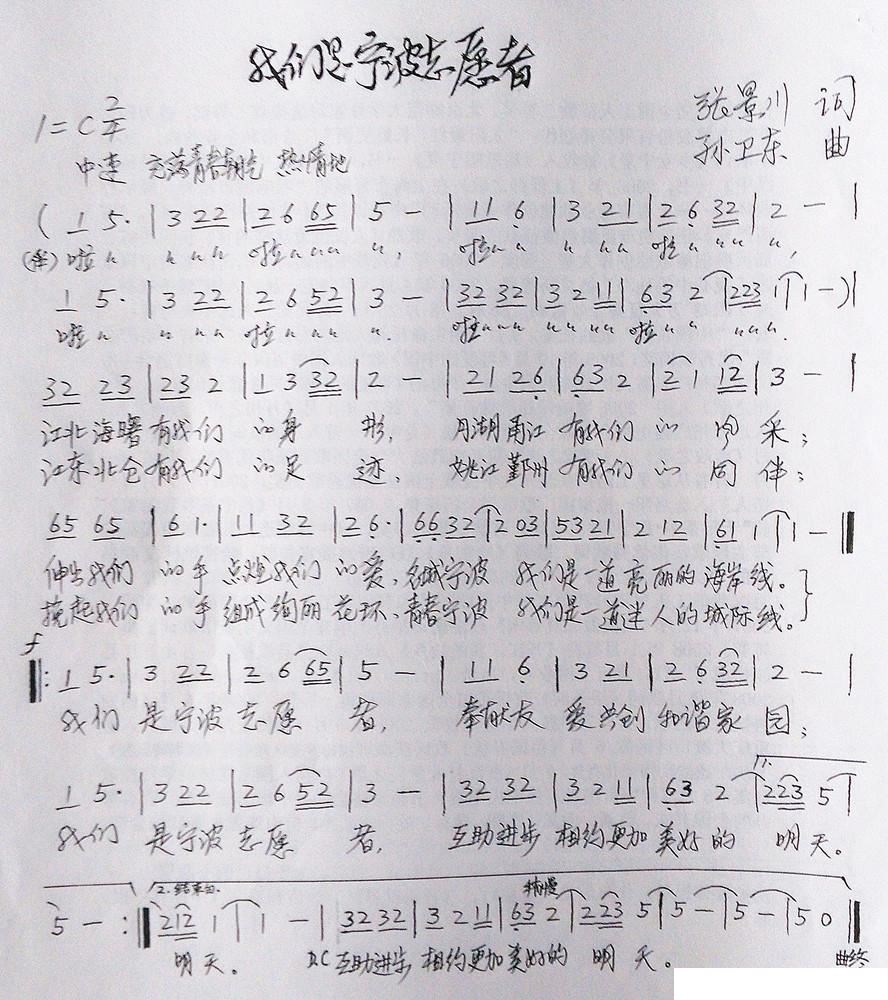 我们是宁波志愿者
1=C 2/4
张景川 词
孙卫东 曲
中速 充满青春朝气 热情地
( 1 5· | 3 22 | 2 6 65 | 5 – | 11 6 | 3 21 | 2 6 32 | 2 – |
(伴) 啦 〃 〃 〃〃 啦〃〃〃 〃, 啦〃 〃 〃 〃〃 啦 〃 〃〃 〃,
1 5· | 3 22 | 2 6 52 | 3 – | 32 32 | 3 2 11 | 63 2 | 223 1 | 1 –) |
啦 〃 〃 〃〃 啦〃〃〃 〃. 啦〃〃〃 〃〃〃〃 啦〃〃 〃〃〃.
32 23 | 23 2 | 1 3 32 | 2 – | 21 26 | 63 2 | 2 1 12 | 3 – |
江北海曙有我们 的身 形, 月湖甬江 有我们 的 风 采;
江东北仑有我们 的足 迹, 姚江鄞州 有我们 的 同 伴;
65 65 | 6 1· | 11 32 | 2 6· | 66 32 | 2 03 | 53 21 | 2 12 | 61 1 | 1 –
伸出我们 的手 点燃我们 的爱,名城宁波 我们是一道亮丽的海岸线。
挽起我们 的手 组成绚丽 花环、青春宁波 我们是一道迷人的城际线。
f
‖: 1 5· | 3 22 | 2 6 65 | 5 – | 11 6 | 3 21 | 2 6 32 | 2 – |
我们 是宁波 志愿 者, 奉献友 爱共创 和谐家 园;
1.
1 5· | 3 22 | 2 6 52 | 3 – | 32 32 | 3 2 11 | 63 2 | 223 5 |
我们 是宁波 志愿 者, 互助进步 相约更加 美好的 明天。
2. 结束句. 稍慢
5 – :‖ 212 1 | 1 – | 32 32 | 3 2 11 | 63 2 | 223 5 | 5 – | 5 – | 5 0 ‖
明天。 D.C 互助进步 相约更加美好的 明 天。 曲终